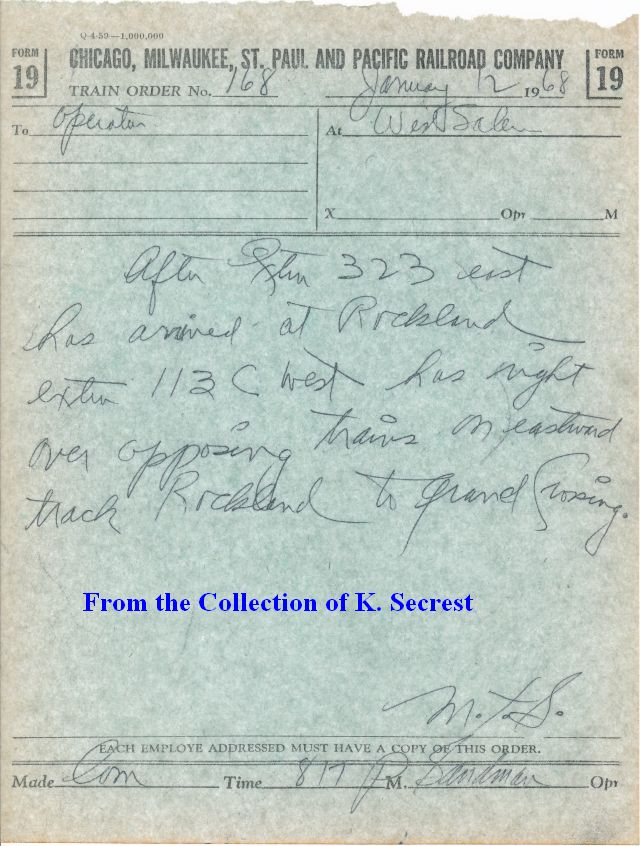 Q-4-59—1,000,000
FORM 19
CHICAGO, MILWAUKEE, ST. PAUL AND PACIFIC RAILROAD COMPANY
FORM 19
TRAIN ORDER No. 168 January 12 1968
To Operator
At West Salem
X Opr M
After Extra 323 east
has arrived at Rockland
extra 113 C West has right
over opposing trains on eastward
track Rockland to Grand Crossing.
From the Collection of K. Secrest
EACH EMPLOYE ADDRESSED MUST HAVE A COPY OF THIS ORDER.
Made Com Time 817 P M. Sandman Opr